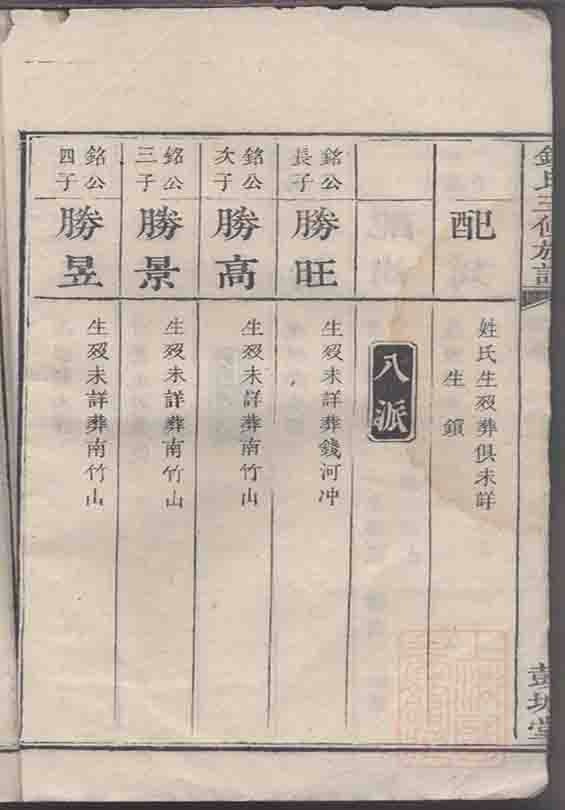 氏三修族譜
彭城堂
配
姓氏生殁葬俱未詳
生鎖
八派
銘公
長子
勝旺
生殁未詳葬錢河冲
銘公
次子
勝高
生殁未詳葬南竹山
銘公
三子
勝景
生殁未詳葬南竹山
銘公
四子
勝昱
生殁未詳葬南竹山